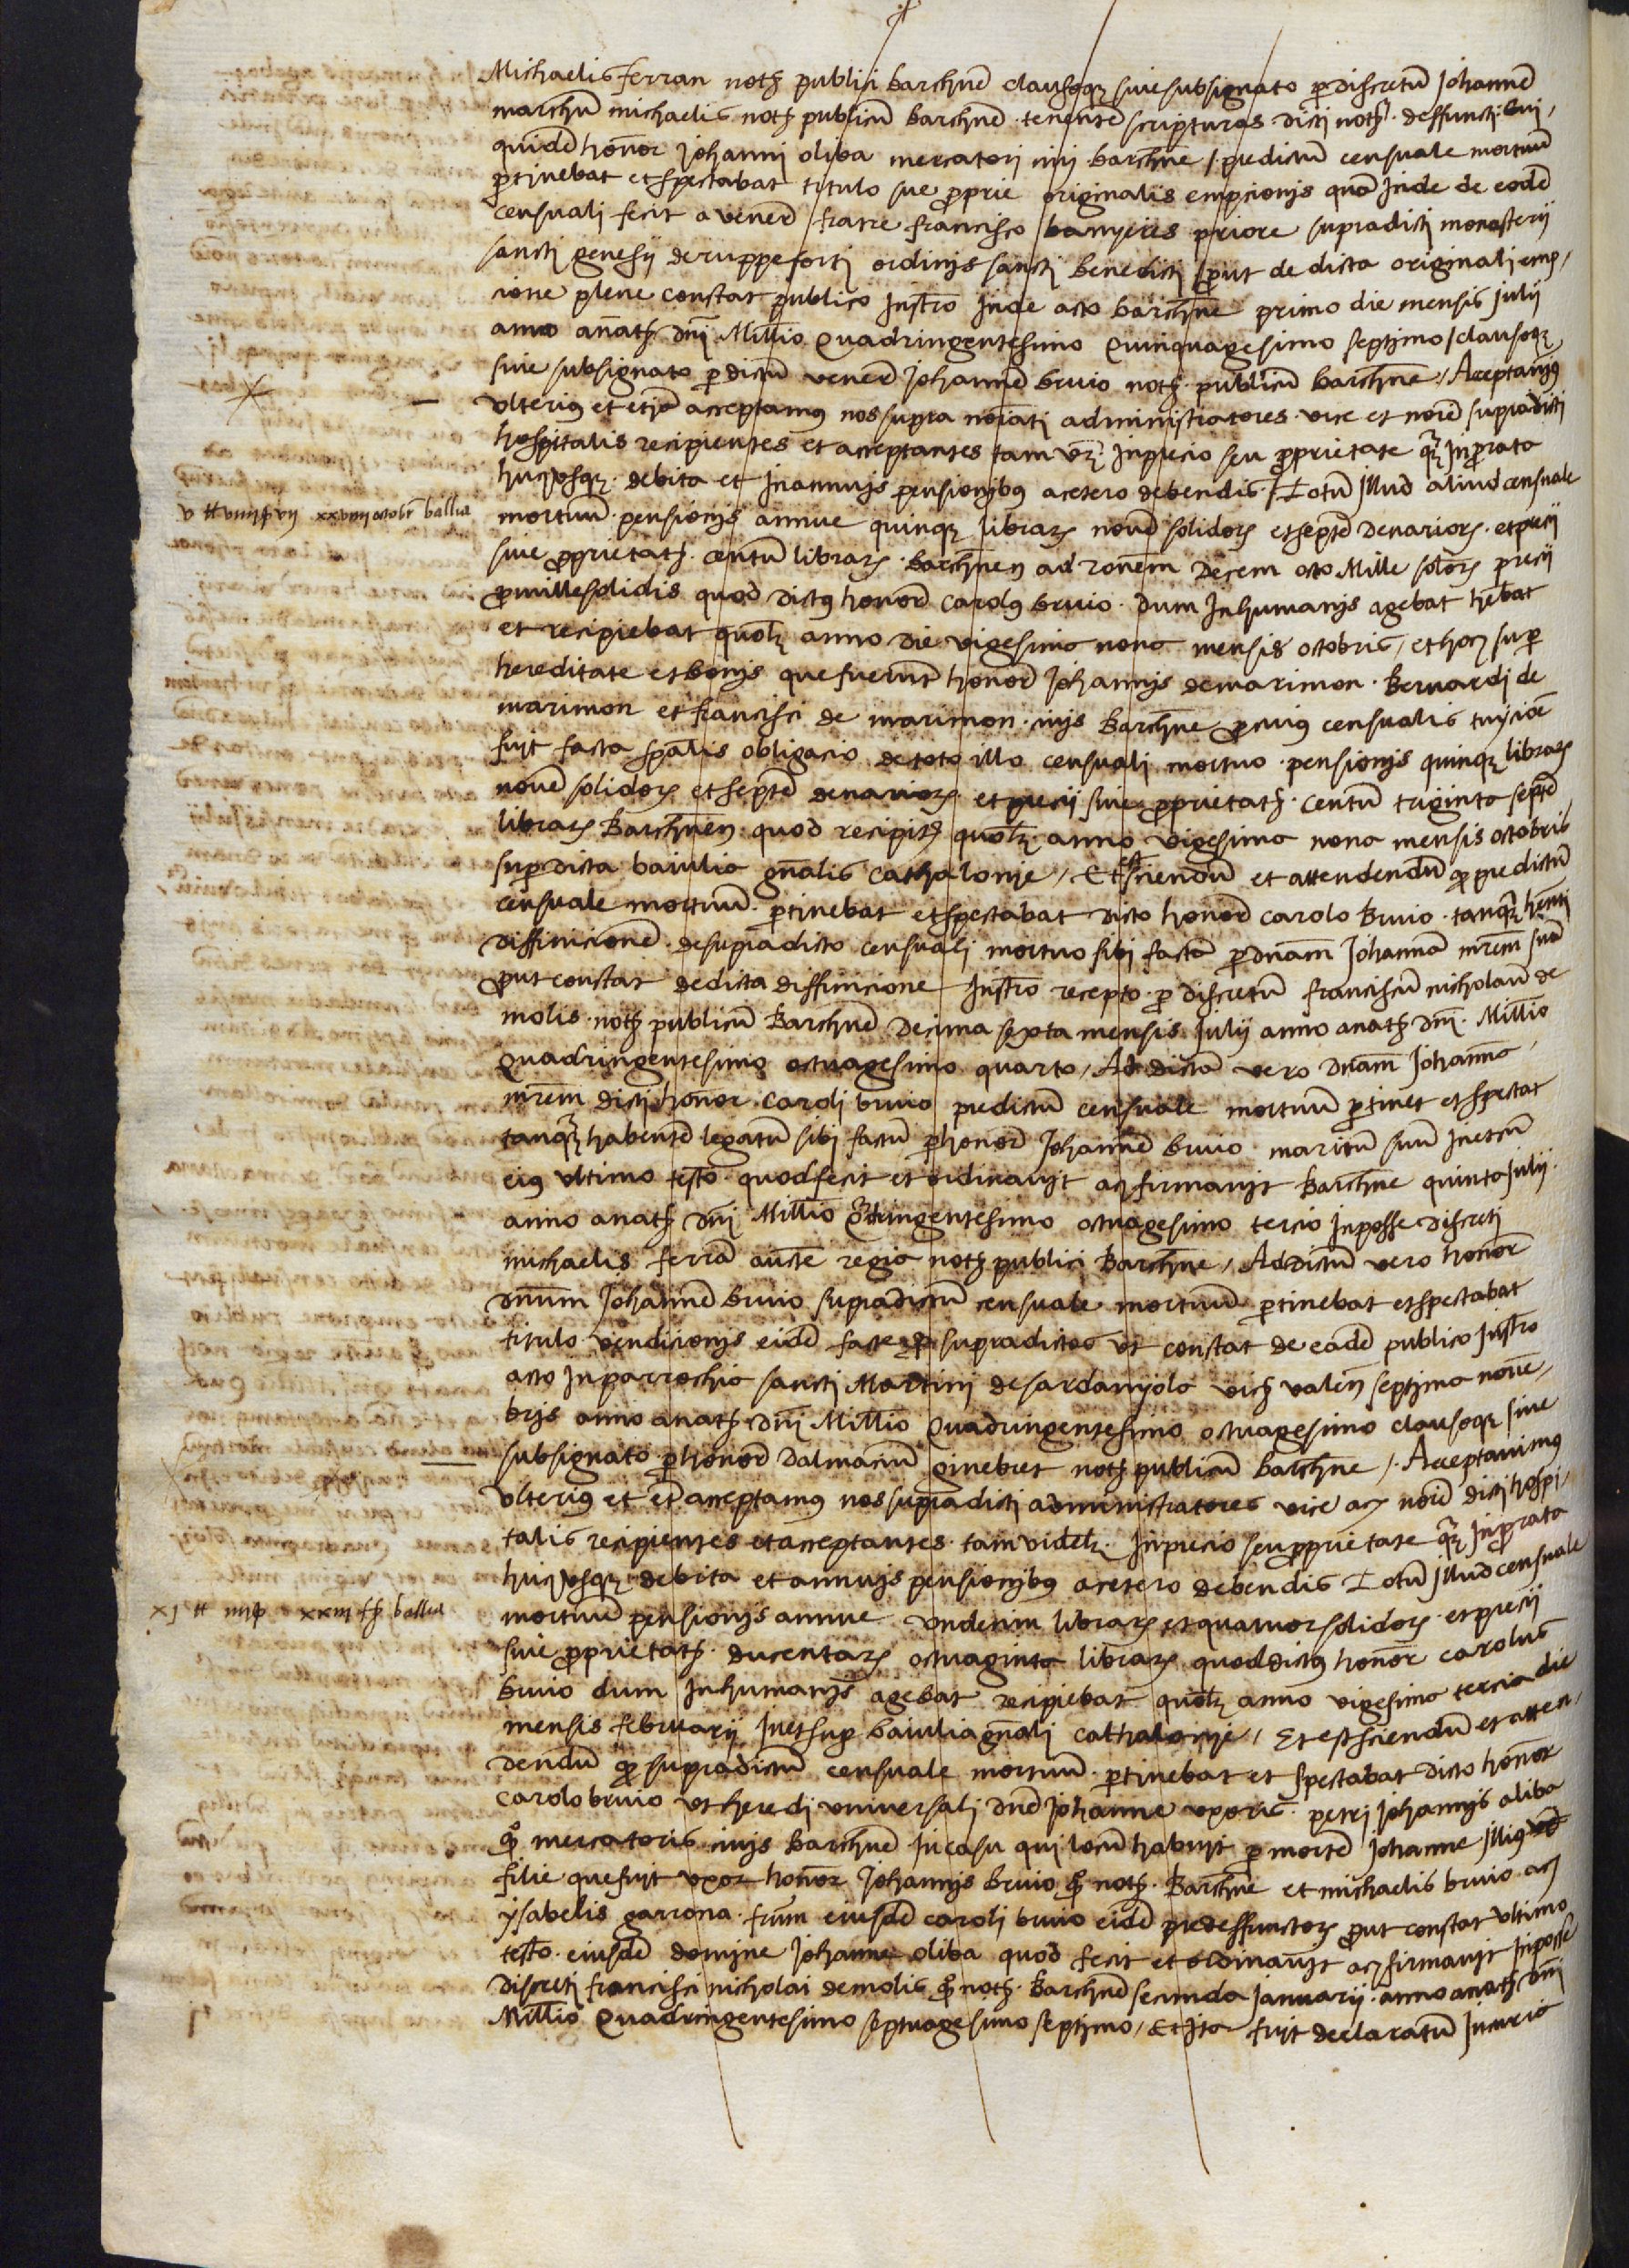 Michaelis ferran noth publici barchne clausoqz sive subsignato p discretu Johanne
marchu michaelis noth publicu barchne . tenente scripturas dicti noth . deffuncti . Cui
quide honor Johanni oliba mercatori civi barchne / predictu censuale mortuu
ptinebat et spectabat titulo sue proprie originalis empcionis qua inde de eode
censuali fecit a venere fratre francisco banyeres priore supradicti monasterij
sancti genesij de ruppeforti ordinis sancti benedicti / put de dicta originali emp /
cione plene constat publico Instro inde acto barchne primo die mensis julij
anno a nath dni Millio Quadringentesimo Quinquagesimo septimo / clausoqz
sive subsignato p dictu venere Johanne bruio noth . publicu barchne / Acceptamus
ulterius et etia acceptamus nos supra noiati administratores . vice et noie supradicti
hospitalis recipientes et acceptantes tam vz . in precio seu proprietate qz in prorata
hucusqz . debita et in annuis pensionibus a cetero debendis / Totu illud aliud censuale
v tt viiii ss vii xxviiii octobr ballia
mortuu . pensionis annue quinqz librarz nove solidorz et septe denariorz . et precij
sive proprietath . centu librarz . barchnen ad ronem decem octo Mille solorz precij
p mille solidis quod dictus honor carolus bruio . dum in humanis agebat hebat
et recipiebat quolz anno die vigesimo nono mensis octobris / et hoc sup
hereditate et bonis que fuerunt honor Johannis de marimon . Bernardi de
marimon et francisci de marimon . civis Barchne p cuius censualis tuicioe
fuit facta spalis obligacio de toto illo censuali mortuo . pensionis quinqz librarz
nove solidorz et septe denariorz . et precij sive proprietath . centu triginta septe
librarz Barchnen . quod recipit quolz . anno vigesima nona mensis octobris
sup dicta baiulia gnalis cathalonie / Et est sciendu et attendendu q predictu
censuale mortuu . ptinebat et spectabat dicto honor carolo Bruio . tanqz henti
diffinicione . de supradicto censuali mortuo sibi facta p dnam Johanna mrem sua
put constat de dicta diffinicione Instro recepto . p discretu franciscu nicholau de
molis . noth publicu Barchne decima sexta mensis julij anno a nath dni . Millio
Quadringentesimo octuagesimo quarto / Ad dicta vero dnam Johanna
mrem dicti honor . caroli bruio predictu censuale mortuu ptinet et spectat
tanqz habente legatu sibi factu p honor Johanne bruio . maritu suu in et cu
eius ultimo testo . quod fecit et ordinavit ac firmavit Barchne quinto julij .
anno a nath dni Millio Qdringentesimo octuagesimo tercio in posse discreti
michaelis ferra aucte regia noth publici Barchne / Ad dictu vero honor
dnum Johanne bruio supradictu censuale mortuu ptinebat et spectabat
titulo vendicionis eide facte p supradictos ut constat de eade publico Instro
acto in parrochia sancti Martini de sardanyola vich valen septima nove /
bris anno a nath dni Millio Quadringentesimo octuagesimo clausoqz sive
subsignato . p honor dalmaciu ginebret noth publicu barchne / . Acceptavimus
ulterius et et acceptamus nos supradicti administratores vice ac noie dicti hospi /
talis recipientes et acceptantes . tam videlz . in precio seu proprietate qz in prorata
hucusqz debita et annuis pensionibus a cetero debendis Totu illud censuale
xj tt iiii ss xxiii fb ballia
mortuu pensionis annue . undecim librarz et quatuor solidorz . et precij
sive proprietath . ducentarz octuaginta librarz quod dictus honor carolus
bruio dum in humanis agebat recipiebat quolz anno vigesima tercia die
mensis februarij in et sup baiulia gnali cathalonie / Et est sciendu et atten /
dendu q supradictu censuale mortuu . ptinebat et spectabat dicto honor
carolo bruio ut heredi universali dne Johanne uxoris . petri Johannis oliba
qo mercatoris civis Barchne in casu qui locu habuit p morte Johanne illius
filie que fuit uxor honor Johannis bruio qo noth . Barchne et michaelis bruio . ac
ysabelis garrona . frum eiusde caroli bruio eide predeffunctorz put constat ultimo
testo . eiusde domine Johanne oliba quod fecit et ordinavit ac firmavit in posse
discreti francisci nicholai de molis qo noth . Barchne secunda januarij . anno a nath dni
Millio Quadringentesimo septuagesimo septimo / Et ita fuit declaratu in curia